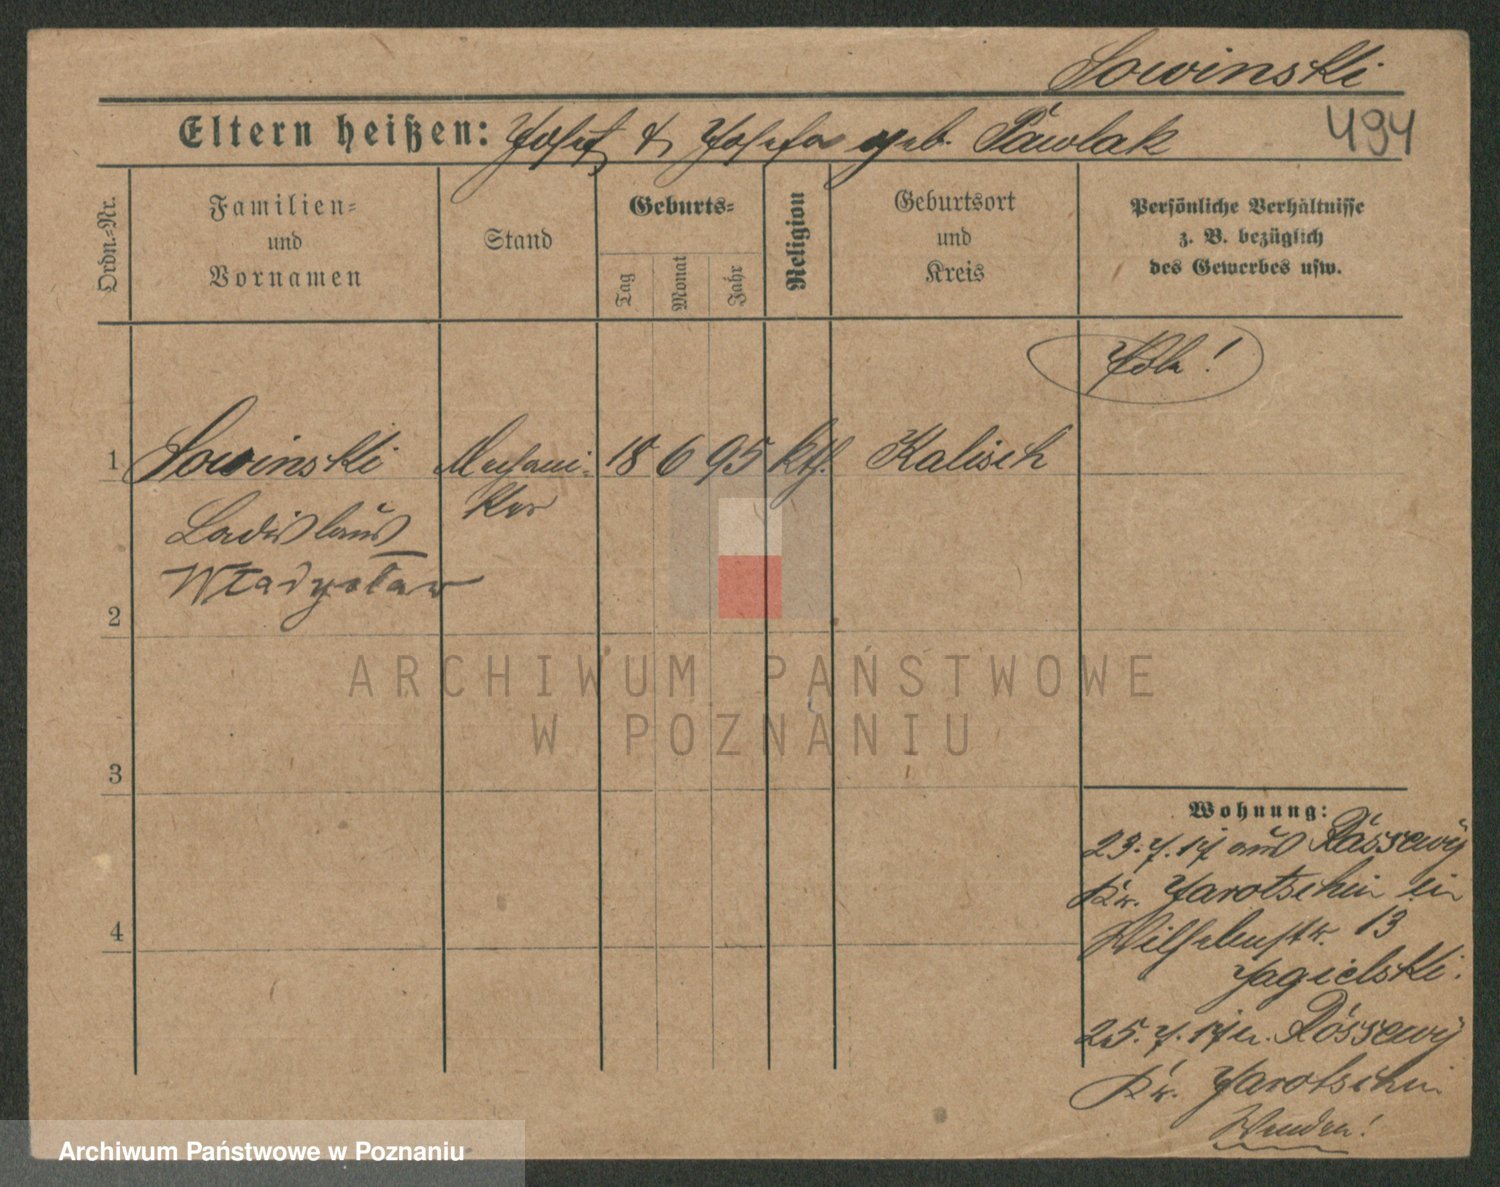 Sowinski
494
Eltern heißen: Josef & Josefa geb. Pawlak
Ordn.-Nr.
Familien-
und
Vornamen
Stand
Geburts-
Tag
Monat
Jahr
Religion
Geburtsort
und
Kreis
Persönliche Verhältnisse
z. B. bezüglich
des Gewerbes usw.
Pole!
1 Sowinski Mechani- 18 6 95 kth. Kalisch
ker
Ladislaus
Władysław
2
3
4
ARCHIWUM PAŃSTWOWE
W POZNANIU
Wohnung:
23.7.17 aus
Kr. Jarotschin in
Wilhelmstr. 13
Jagielski.
25.7.17 n.
Kr. Jarotschin
Wenden!
Archiwum Państwowe w Poznaniu